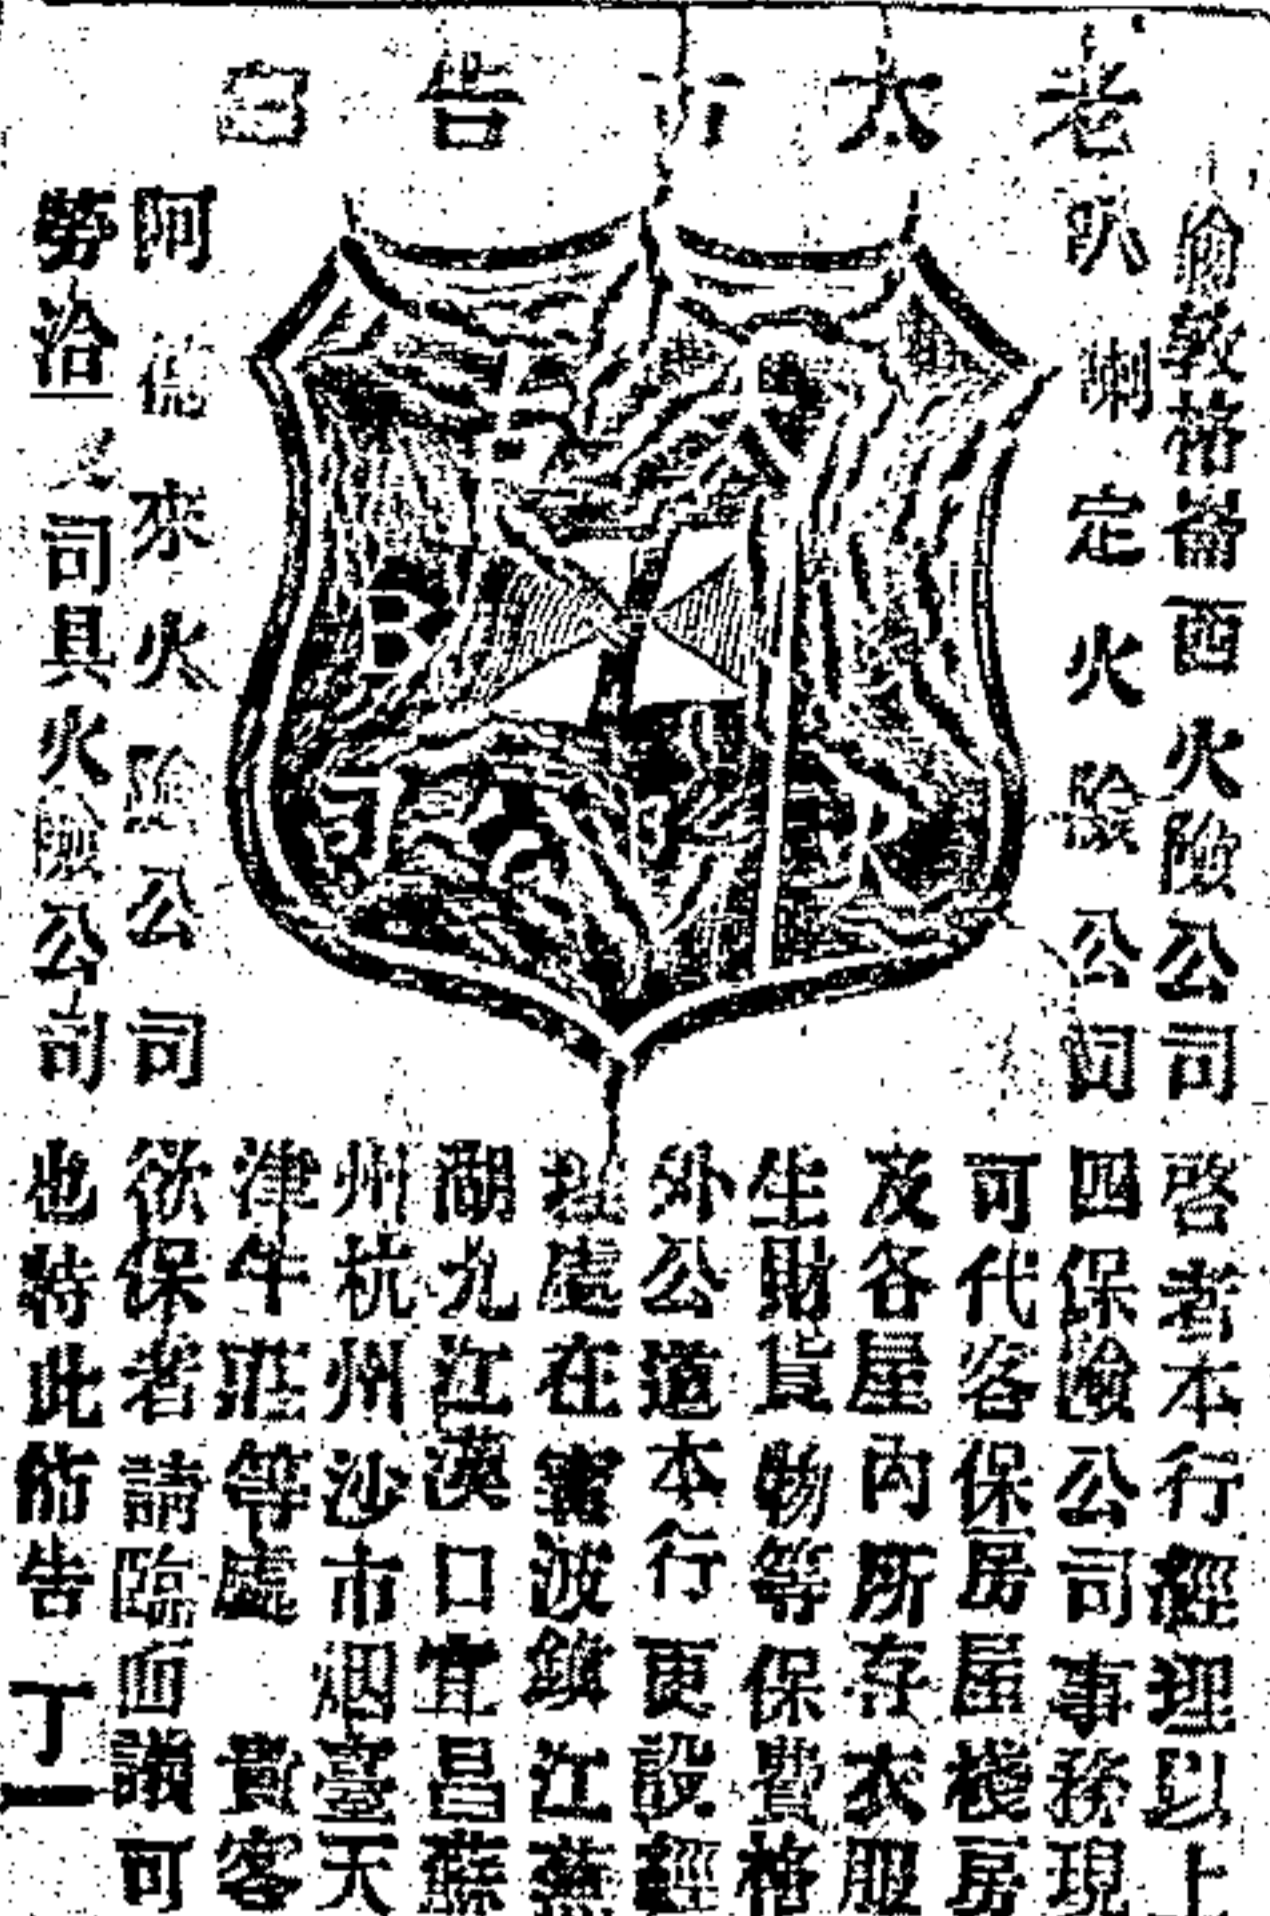 老太古告白
倫敦格崙西火險公司
叭喇定火險公司
阿德來火險公司
勞洽 司具火險公司
啓者本行經理以上
四保險公司事務現
可代客保房屋棧房
及各屋內所存衣服
生財貨物等保費格
外公道本行更設經
理處在甯波鎮江蕪
湖九江漢口宜昌蘇
州杭州沙市烟臺天
津牛莊等處 貴客
欲保者請臨面議可
也特此佈告 丁一